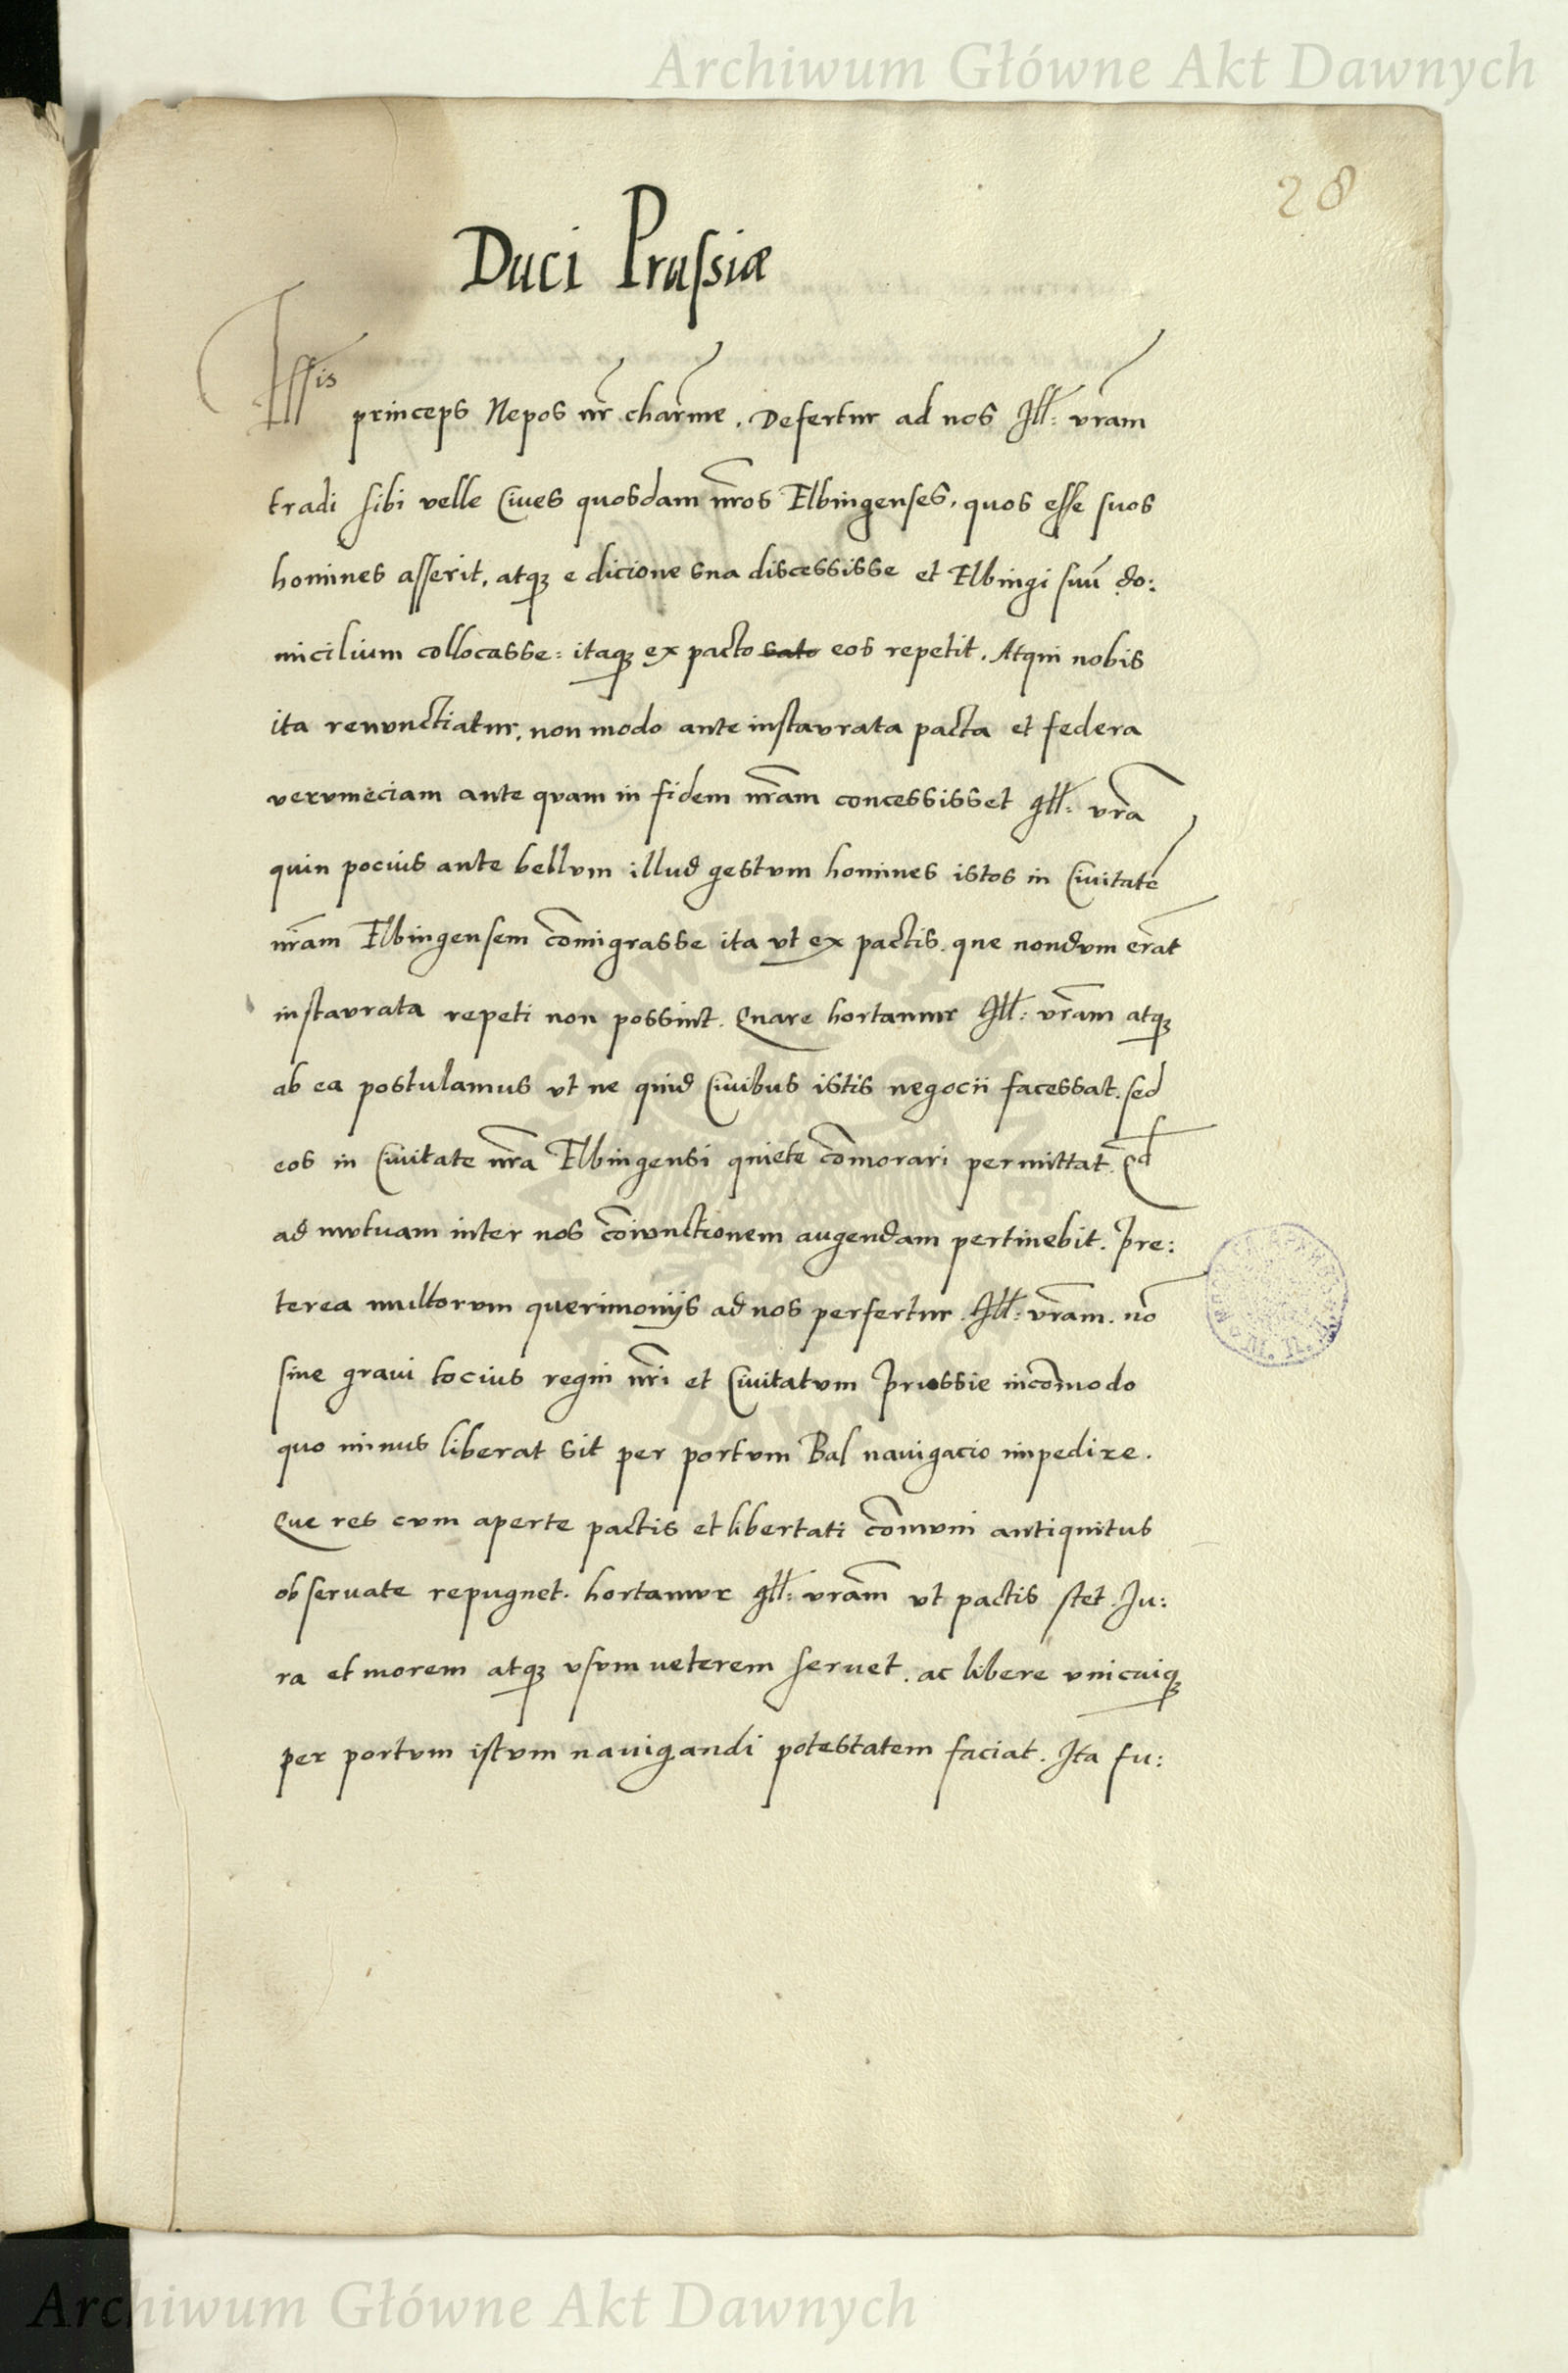 Archiwum Główne Akt Dawnych
28
Duci Prussiæ
Illssis
princeps Nepos nr̄ charme. Defertur ad nos Ill: vram
tradi sibi velle Ciues quosdam nr̄os Elbingenses, quos esse suos
homines asserit, atqꝫ e dicione sua discessisse et Elbingi suū do:
micilium collocasse: itaqꝫ ex pacto eos repetit. Atqui nobis
ita renunctiatur, non modo ante instaurata pacta et federa
verumeciam ante quam in fidem nr̄am concessisset Ill: vr̄a
quin pocius ante bellum illud gestum homines istos in Ciuitatē
nr̄am Elbingensem com̄igrasse ita ut ex pactis. que nondum erāt
instaurata repeti non possint. Quare hortamur Ill: vr̄am atqꝫ
ab ea postulamus ut ne quid Ciuibus istis negocii facessat. sed
eos in Ciuitate nr̄a Elbingensi quiete com̄orari permittat. Qd
ad mutuam inter nos coniunctionem augendam pertinebit. Pre:
terea multorum querimoniis ad nos perfertur. Ill: vr̄am. nō
sine graui tocius regni nr̄i et Ciuitatum Prussie incom̄odo
quo minus liberat sit per portum Bal nauigacio impedire.
Que res cum aperte pactis et libertati com̄uni antiquitus
obseruate repugnet. hortamur Ill: vr̄am ut pactis stet. Ju:
ra et morem atqꝫ usum ueterem seruet. ac libere unicuiqꝫ
per portum istum nauigandi potestatem faciat. Ita fu:
Archiwum Główne Akt Dawnych